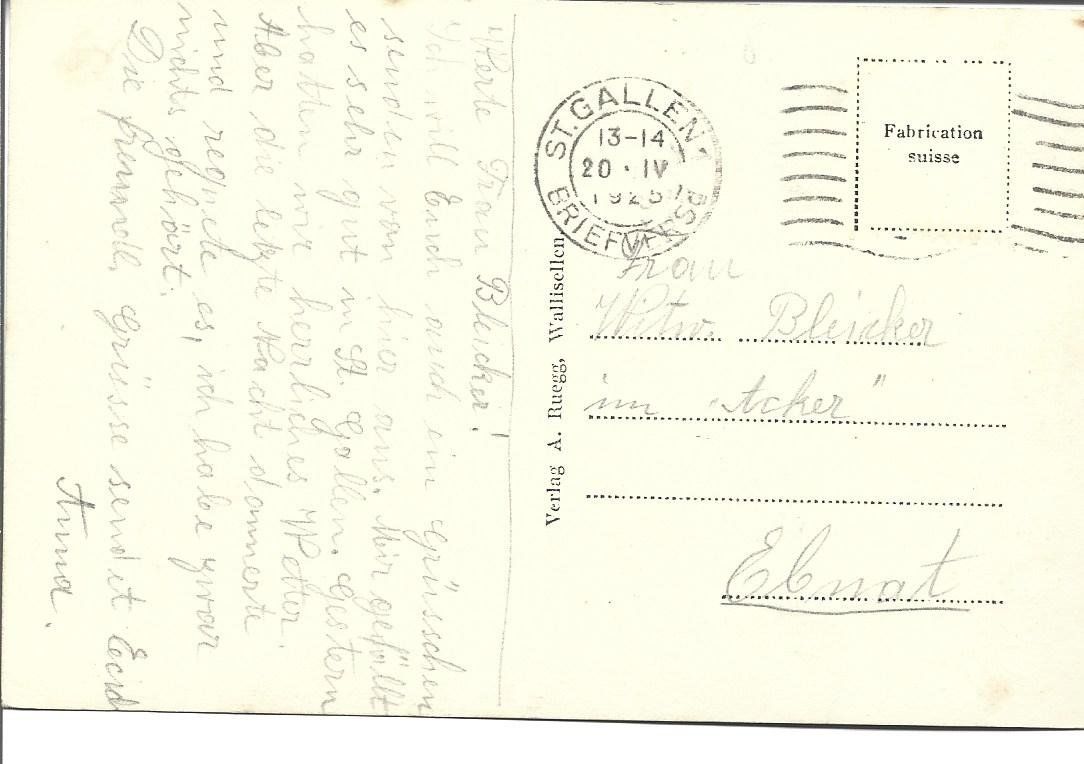 Werte Frau Bleicker!
Ich will Euch auch ein Grüsschen
senden von hier aus. Mir gefällt
es sehr gut in St. Gallen. Gestern
hatten wir herrliches Wetter.
Aber die letzte Nacht donnerte
und regnete es, ich habe zwar
nichts gehört.
Die freundl. Grüsse sendet Euch
Anna.
Verlag A. Ruegg, Wallisellen
ST. GALLEN 1
13-14
20 · IV
BRIEFVERSD
Fabrication
suisse
Frau
Witw. Bleicker
im "Acker"
Ebnat